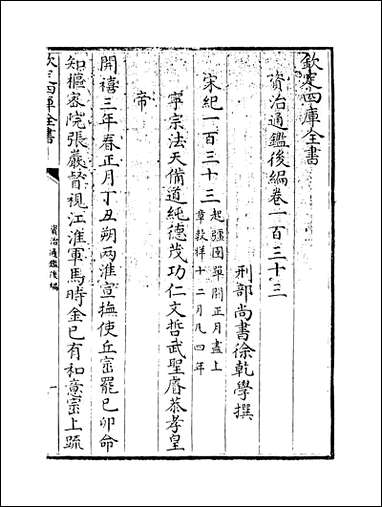 欽定四庫全書
資治通鑑後編卷一百三十三
刑部尚書徐乾學撰
宋紀一百三十三
起彊圉單閼正月盡上
章敦牂十二月凡四年
寧宗法天備道純德茂功仁文哲武聖睿恭孝皇
帝
開禧三年春正月丁丑朔兩淮宣撫使丘崈罷已卯命
知樞密院張巖督視江淮軍馬時金已有和意崈上疏
欽定四庫全書
資治通鑑後編
一